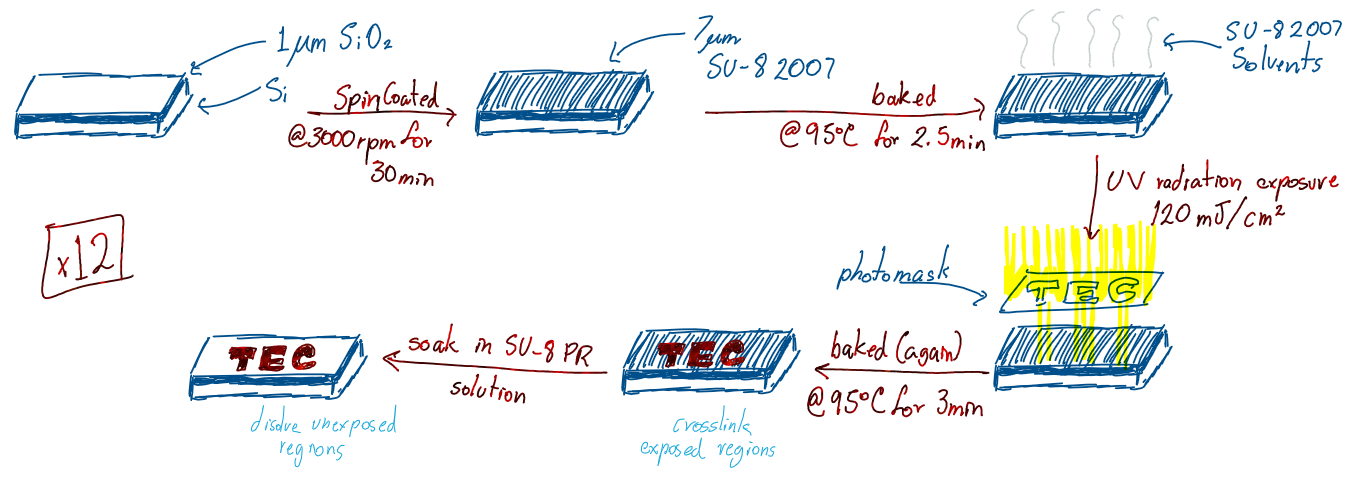 1μm SiO₂
Si
SpinCoated
@3000rpm for
30min
7μm
SU-8 2007
baked
@95°C for 2.5min
SU-8 2007
Solvents
UV radiation exposure
120 mJ/cm²
x12
photomask
TEC
baked (again)
@95°C for 3min
TEC
crosslink
exposed regions
soak in SU-8 PR
solution
TEC
disolve unexposed
regions